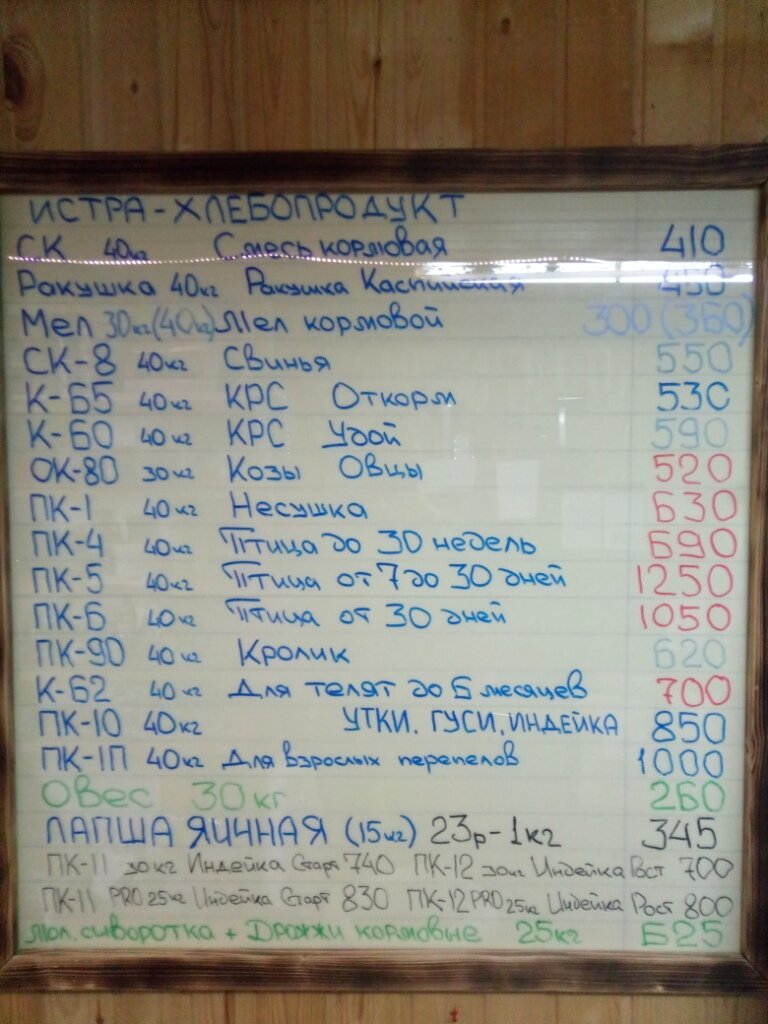 ИСТРА-ХЛЕБОПРОДУКТ
СК 40кг Смесь кормовая 410
Ракушка 40кг Ракушка Каспийская 450
Мел 30кг(40кг) Мел кормовой 300 (360)
СК-8 40кг Свинья 550
К-65 40кг КРС Откорм 530
К-60 40кг КРС Удой 590
ОК-80 30кг Козы Овцы 520
ПК-1 40кг Несушка 630
ПК-4 40кг Птица до 30 недель 690
ПК-5 40кг Птица от 7 до 30 дней 1250
ПК-6 40кг Птица от 30 дней 1050
ПК-90 40кг Кролик 620
К-62 40кг Для телят до 6 месяцев 700
ПК-10 40кг УТКИ. ГУСИ, ИНДЕЙКА 850
ПК-1П 40кг Для взрослых перепелов 1000
Овес 30кг 260
ЛАПША ЯИЧНАЯ (15кг) 23р-1кг 345
ПК-11 30кг Индейка Старт 740 ПК-12 30кг Индейка Рост 700
ПК-11 PRO 25кг Индейка Старт 830 ПК-12 PRO 25кг Индейка Рост 800
Мол. сыворотка + Дрожжи кормовые 25кг 625